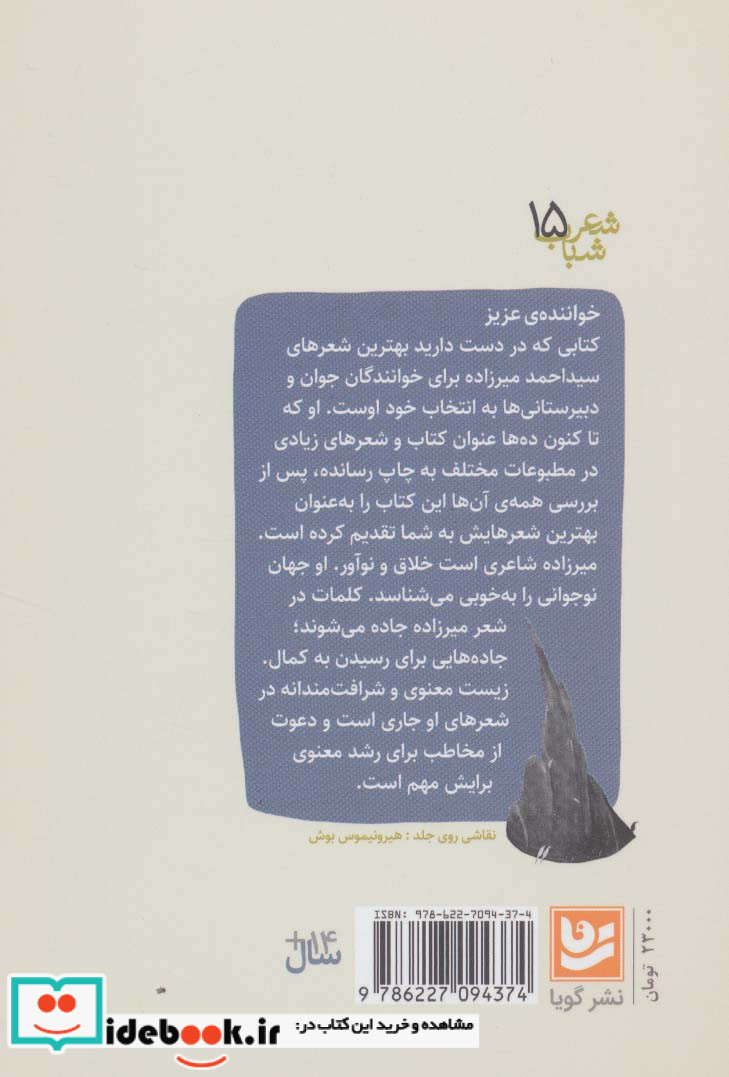 شعر ۱۵
شباب
خواننده‌ی عزیز
کتابی که در دست دارید بهترین شعرهای
سیداحمد میرزاده برای خوانندگان جوان و
دبیرستانی‌ها به انتخاب خود اوست. او که
تا کنون ده‌ها عنوان کتاب و شعرهای زیادی
در مطبوعات مختلف به چاپ رسانده، پس از
بررسی همه‌ی آن‌ها این کتاب را به‌عنوان
بهترین شعرهایش به شما تقدیم کرده است.
میرزاده شاعری است خلاق و نوآور. او جهان
نوجوانی را به‌خوبی می‌شناسد. کلمات در
شعر میرزاده جاده می‌شوند؛
جاده‌هایی برای رسیدن به کمال.
زیست معنوی و شرافت‌مندانه در
شعرهای او جاری است و دعوت
از مخاطب برای رشد معنوی
برایش مهم است.
نقاشی روی جلد : هیرونیموس بوش
۲۳۰۰۰ تومان
گویا
نشر گویا
ISBN: 978-622-7094-37-4
9 786227 094374
+۱۴
سال
مشاهده و خرید این کتاب در:
idebook.ir